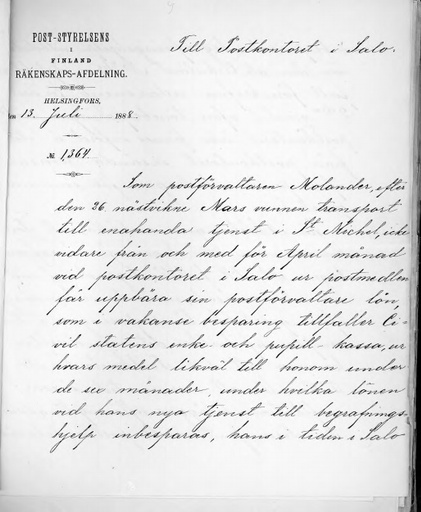 POST-STYRELSENS
I
FINLAND
RÄKENSKAPS-AFDELNING.
HELSINGFORS,
den 13. Juli 1888.
№ 1,364.
Till Postkontoret i Salo.
Som postförvaltaren Molander, efter
den 26 nästvikne Mars vunnen transport
till enahanda tjenst i St Michel, icke
vidare från och med för April månad
vid postkontoret i Salo ur postmedlen
får uppbära sin postförvaltare lön,
som i vakanse besparing tillfaller Ci-
vil statens enke- och pupill-kassa, ur
hvars medel likväl till honom under
de sex månader, under hvilka lönen
vid hans nya tjenst till begrafnings-
hjelp inbesparas, hans i tiden i Salo